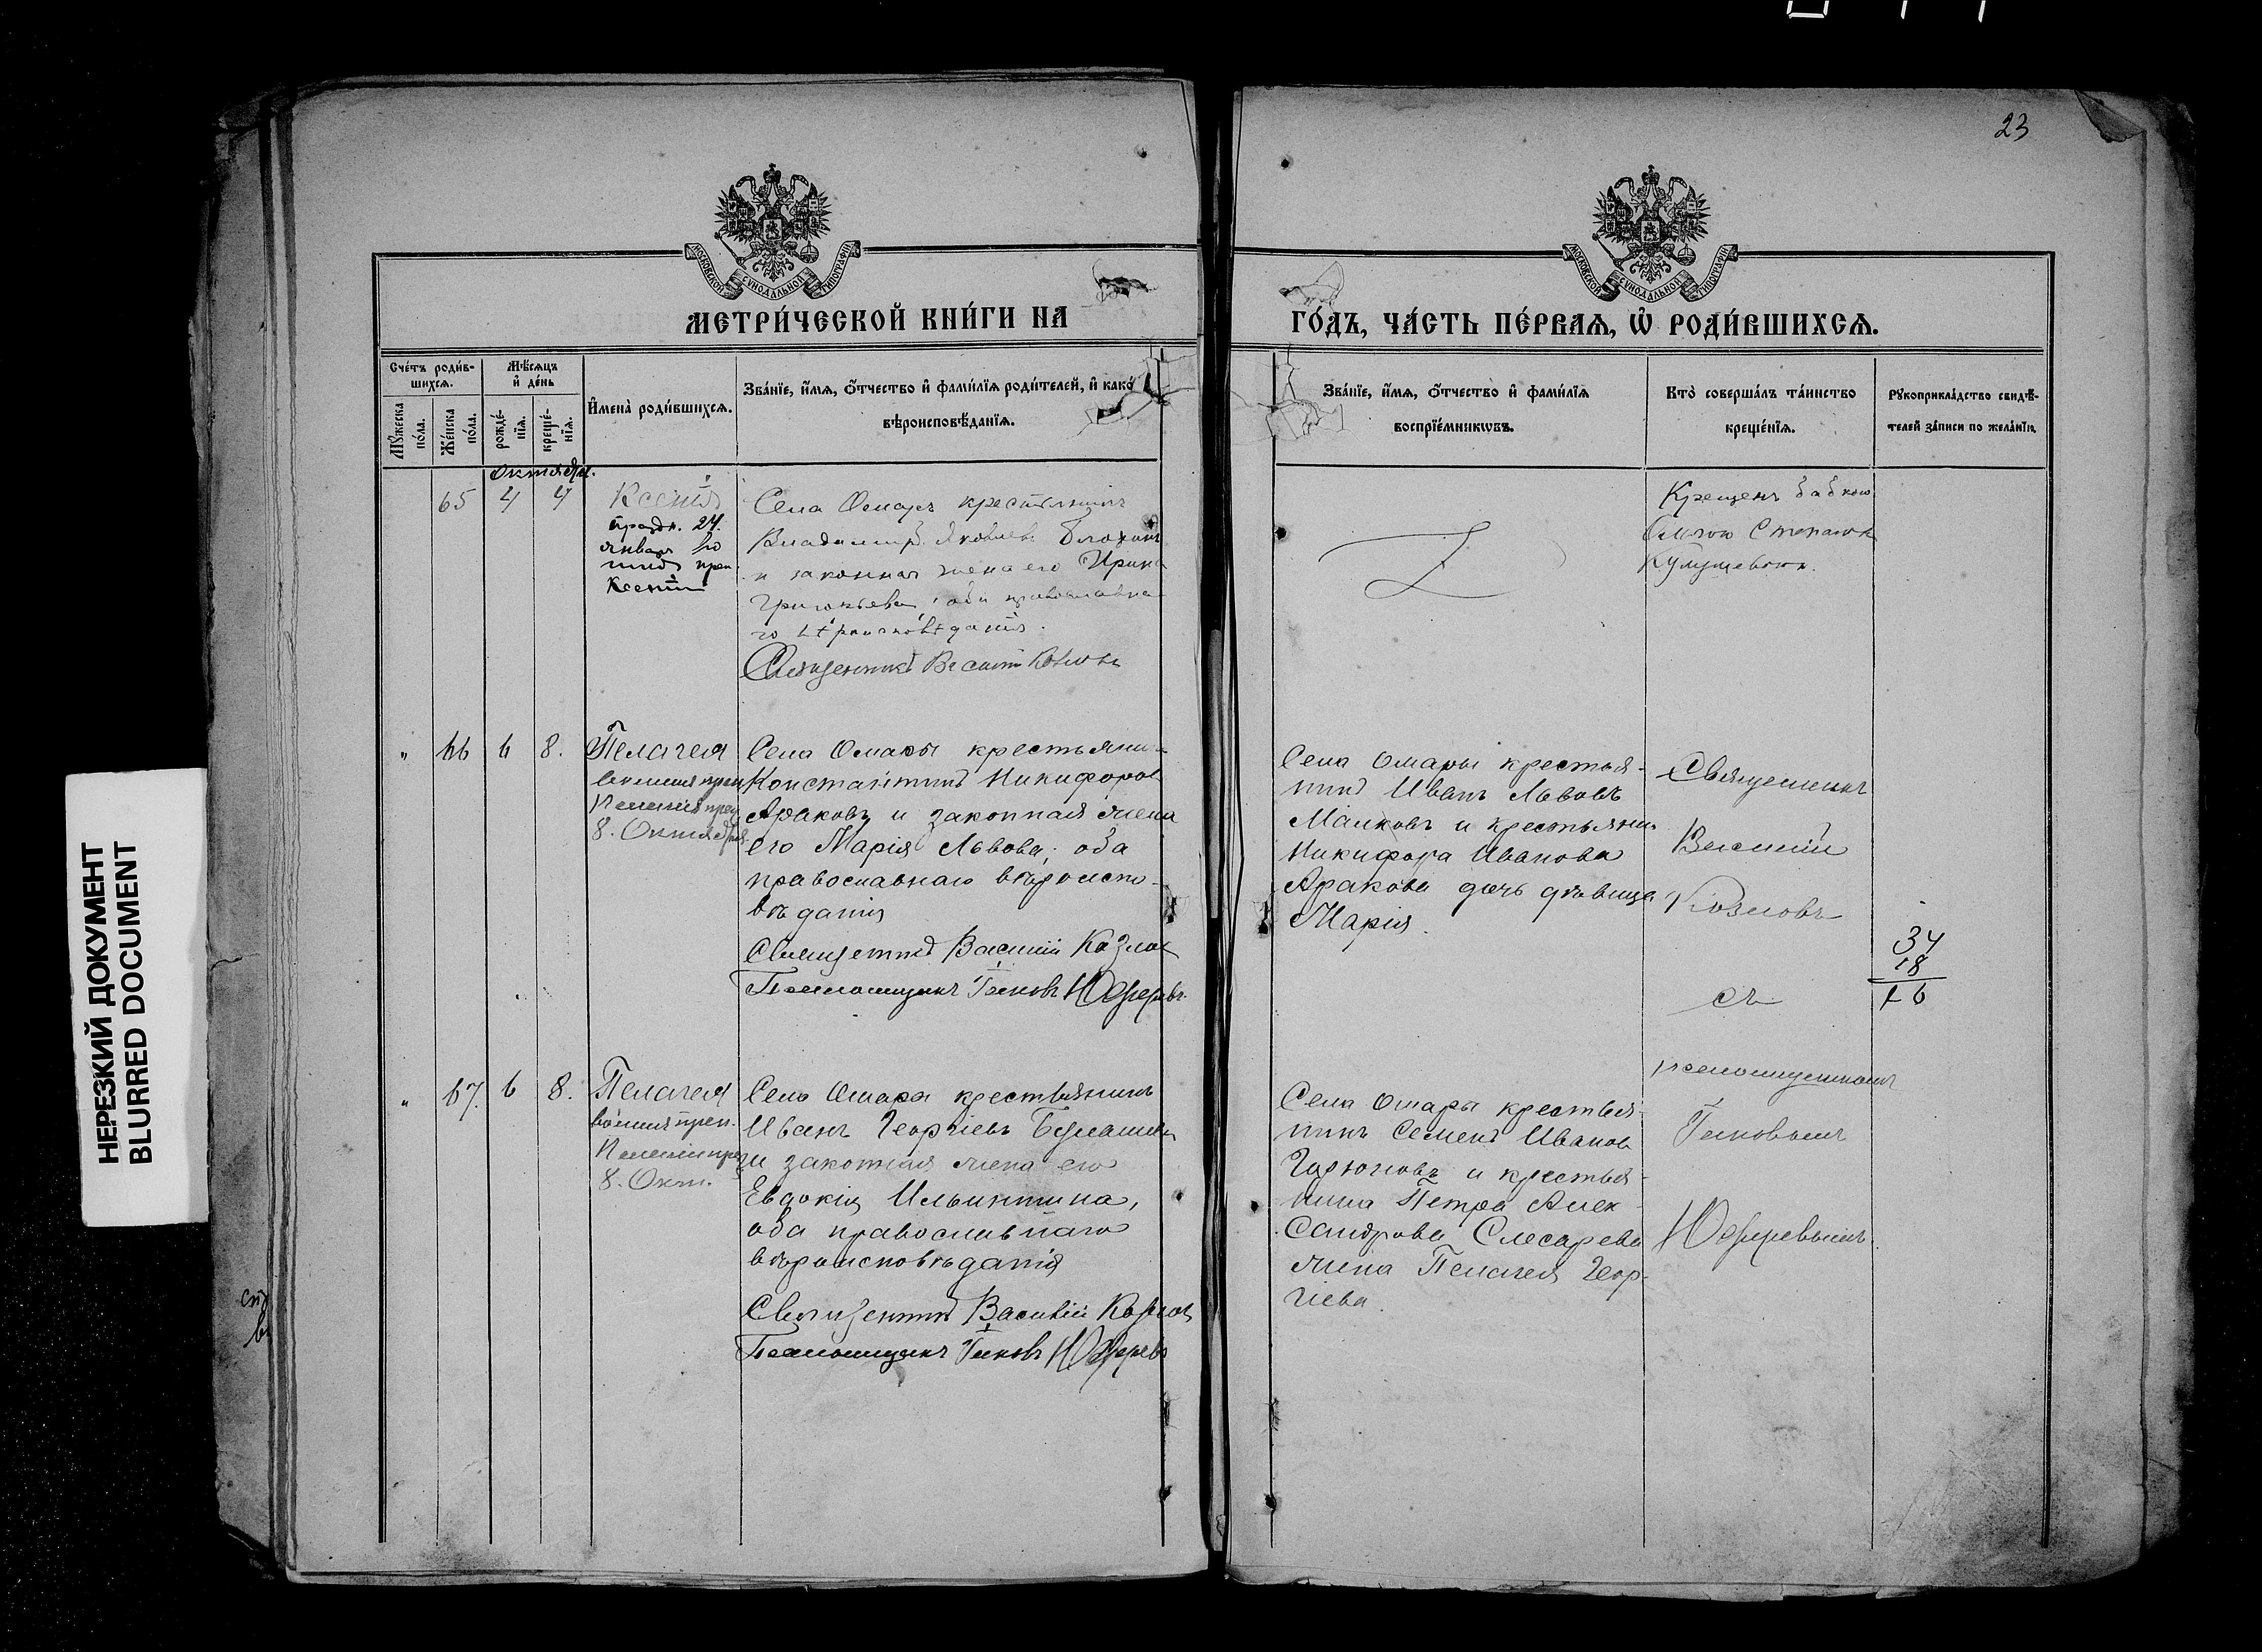 23
МОСКОВСКОЙ СУНОДАЛЬНОЙ ТИПОГРАФІИ
МОСКОВСКОЙ СУНОДАЛЬНОЙ ТИПОГРАФІИ
МЕТРИ́ЧЕСКОЙ КНИ́ГИ НА
ГО́ДЪ, ЧА́СТЬ ПЕ́РВАѦ, Ѡ҆ РОДИ́ВШИХСѦ.
Сче́тъ роди́в-
шихсѧ.
Мѣ́сѧцъ
и҆ де́нь
Мꙋ́жеска
по́ла.
Же́нска
по́ла.
рожде́-
нїѧ.
креще́-
нїѧ.
И҆мена̀ роди́вшихсѧ.
Зва́нїе, и҆́мѧ, ѻ҆́тчество и҆ фами́лїѧ роди́телей, и҆ како́
вѣроисповѣ́данїѧ.
Зва́нїе, и҆́мѧ, ѻ҆́тчество и҆ фами́лїѧ
воспрїе́мникѡвъ.
Кто̀ соверша́лъ та́инство
креще́нїѧ.
Рꙋкоприкла́дство свидѣ́-
телей за́писи по жела́нїю.
октября.
65 4 4
Ксенія
праздн. 24.
января
Ксенія
Села Омаръ крестьянинъ
Владимиръ Яковлевъ Блохинъ
и законная жена его Ирина
Григорьева, оба православна-
го вѣроисповѣданія.
Священникъ Василій Козловъ
Крещенъ бабкою
" 66 6 8.
Пелагея
8. Октября
Села Омары крестьяни-
Константинъ Никифоров
Араковъ и законная жена
его Марія Львова; оба
православнаго вѣроиспо-
вѣданія
Священникъ Василій Козлов
Псаломщикъ Іаковъ Юферевъ.
Села Омары крестья-
нинъ Иванъ Львовъ
Малковъ и крестьянин.
Никифора Иванова
Аракова дочь дѣвица
Марія.
Священникъ
Василій
Козловъ
съ
псаломщикомъ
Іаковомъ
Юферевымъ.
34
18
16
" 67. 6 8.
Пелагея
8. Окт.
Села Омары крестьянинъ
Иванъ Георгіевъ
и законная жена его
Евдокія Ильинтина,
оба православнаго
вѣроисповѣданія
Священникъ Василій Козлов
Псаломщикъ Іаковъ Юферевъ
Села Омары крестья-
нинъ Семенъ Иванов
и крестья-
нина Петра Алек-
сандрова Слесарева
жена Пелагея Геор-
гіева.
НЕРЕЗКИЙ ДОКУМЕНТ
BLURRED DOCUMENT